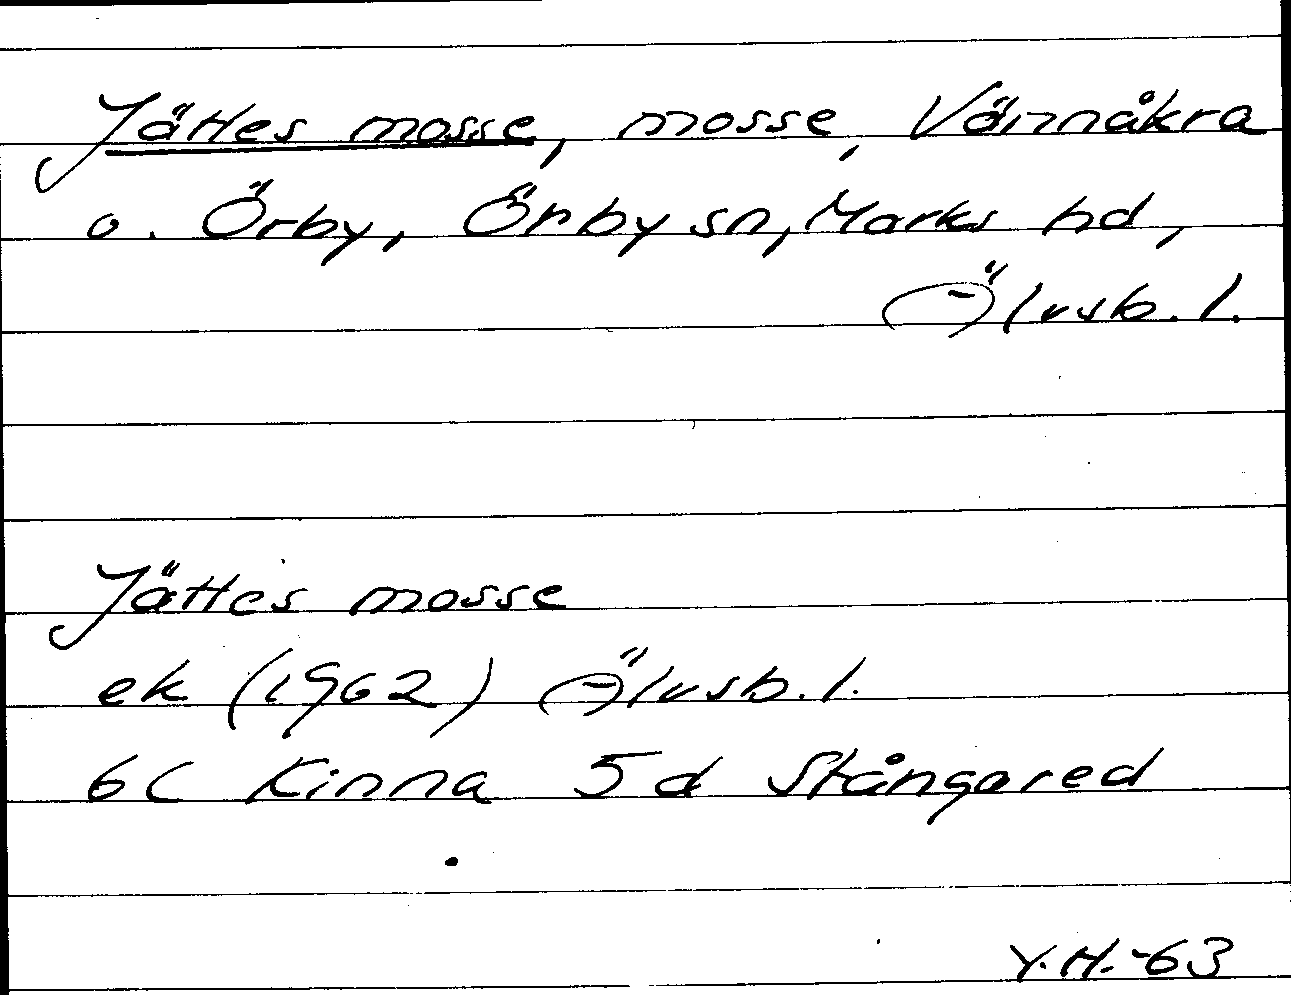 Jättes mosse, mosse, Vännåkra
o. Örby, Örby sn, Marks hd,
Älvsb. l.
Jättes mosse
ek (1962) Älvsb. l.
6C Kinna 5d Stångared
Y.H.-63